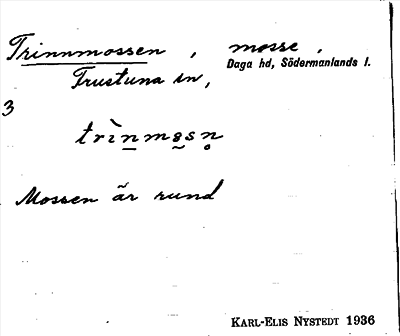 Trinnmossen, mosse,
Daga hd, Södermanlands l.
Frustuna sn,
3
trìn̲mo̰sn̥
Mossen är rund
KARL-ELIS NYSTEDT 1936